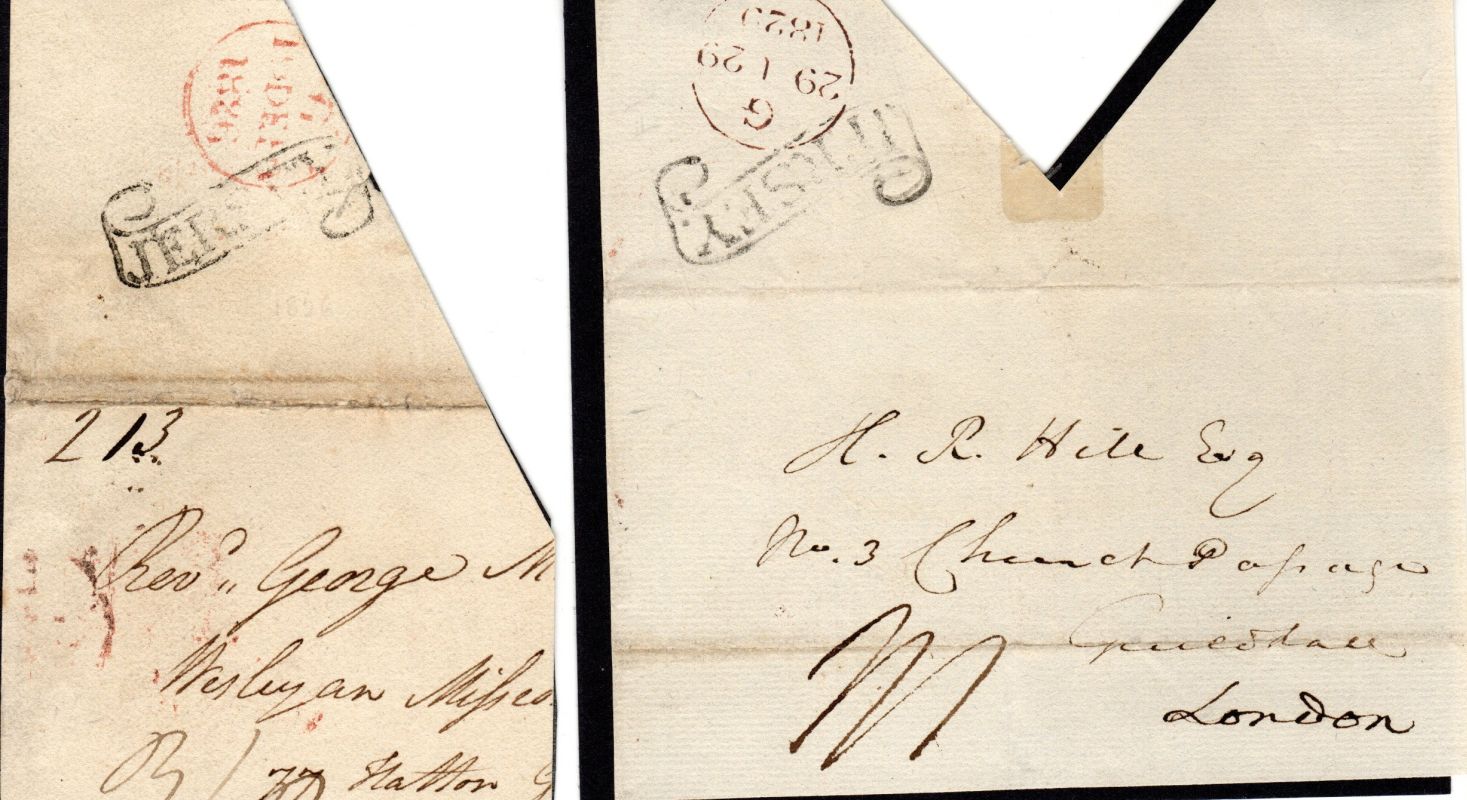 JERSEY
213
Revd. George M
Wesleyan Missio
77 Hatton G
G
29 29
1829
JERSEY
H. R. Hill Esq
No. 3 Church Passage
Guildhall
London